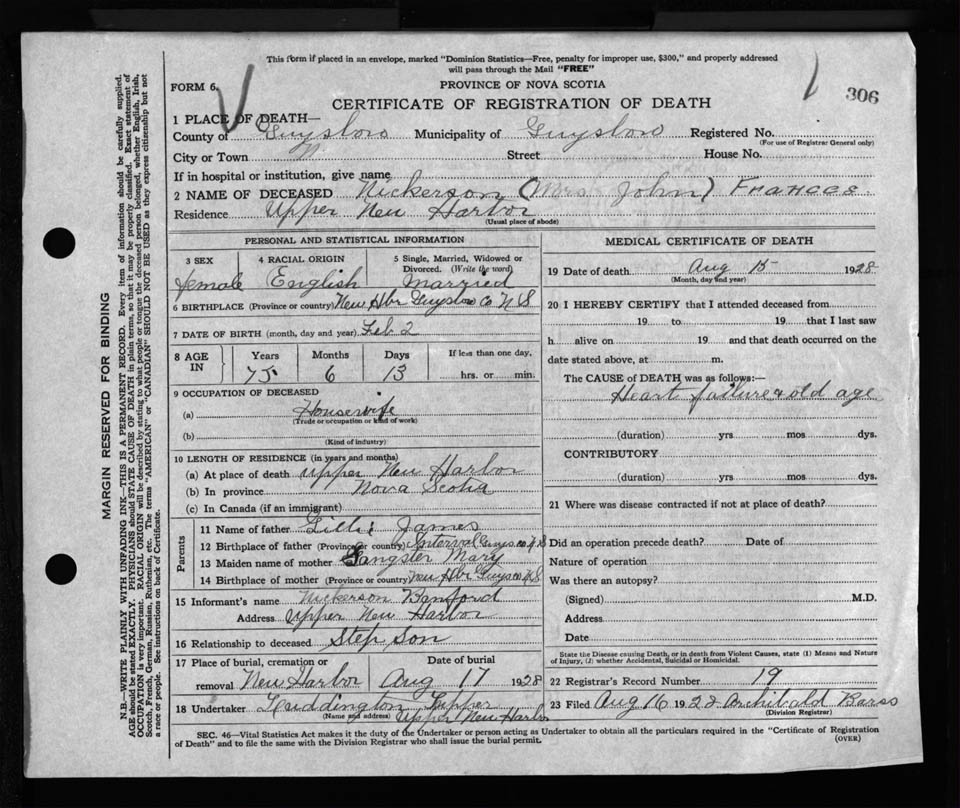 This form if placed in an envelope, marked "Dominion Statistics—Free, penalty for improper use, $300," and properly addressed
will pass through the Mail "FREE"
FORM 6.
PROVINCE OF NOVA SCOTIA
306
CERTIFICATE OF REGISTRATION OF DEATH
1 PLACE OF DEATH—
County of Guysboro Municipality of Guysboro Registered No.
(For use of Registrar General only)
City or Town Street House No.
If in hospital or institution, give name
2 NAME OF DECEASED Nickerson (Mrs John) Frances
Residence Upper New Harbor
(Usual place of abode)
PERSONAL AND STATISTICAL INFORMATION
3 SEX 4 RACIAL ORIGIN 5 Single, Married, Widowed or
Divorced. (Write the word)
female English Married
6 BIRTHPLACE (Province or country) New Hbr Guysboro Co N S
7 DATE OF BIRTH (month, day and year) Feb 2
8 AGE IN Years Months Days If less than one day,
75 6 13 hrs. or min.
9 OCCUPATION OF DECEASED
(a) Housewife
(Trade or occupation or kind of work)
(b)
(Kind of industry)
10 LENGTH OF RESIDENCE (in years and months)
(a) At place of death Upper New Harbor
(b) In province Nova Scotia
(c) In Canada (if an immigrant)
Parents
11 Name of father James
12 Birthplace of father (Province or country) Interval Guys co N S
13 Maiden name of mother Sangster Mary
14 Birthplace of mother (Province or country) New Hbr Guys co N S
15 Informant's name Nickerson Banford
Address Upper New Harbor
16 Relationship to deceased Step Son
17 Place of burial, cremation or Date of burial
removal New Harbor Aug 17 1928
18 Undertaker Luddington
(Name and address) Upper New Harbor
MEDICAL CERTIFICATE OF DEATH
19 Date of death Aug 15 1928
(Month, day and year)
20 I HEREBY CERTIFY that I attended deceased from
19 to 19 that I last saw
h alive on 19 and that death occurred on the
date stated above, at m.
The CAUSE of DEATH was as follows:—
Heart failure & old age
(duration) yrs mos dys.
CONTRIBUTORY
(duration) yrs mos dys.
21 Where was disease contracted if not at place of death?
Did an operation precede death? Date of
Nature of operation
Was there an autopsy?
(Signed) M.D.
Address
Date
State the Disease causing Death, or in death from Violent Causes, state (1) Means and Nature
of Injury, (2) whether Accidental, Suicidal or Homicidal.
22 Registrar's Record Number 19
23 Filed Aug 16 1928 Archibald Barss
(Division Registrar)
SEC. 46—Vital Statistics Act makes it the duty of the Undertaker or person acting as Undertaker to obtain all the particulars required in the "Certificate of Registration
of Death" and to file the same with the Division Registrar who shall issue the burial permit.
(OVER)
MARGIN RESERVED FOR BINDING
N.B.—WRITE PLAINLY WITH UNFADING INK—THIS IS A PERMANENT RECORD. Every item of information should be carefully supplied.
AGE should be stated EXACTLY. PHYSICIANS should STATE CAUSE OF DEATH in plain terms, so that it may be properly classified. Exact statement of
OCCUPATION is very important. RACIAL ORIGIN will be described by stating to what people or tongue the deceased person belonged, whether English, Irish,
Scotch, French, German, Russian, Ruthenian, etc. The terms "AMERICAN" or "CANADIAN" SHOULD NOT BE USED as they express citizenship but not
a race or people. See instructions on back of Certificate.